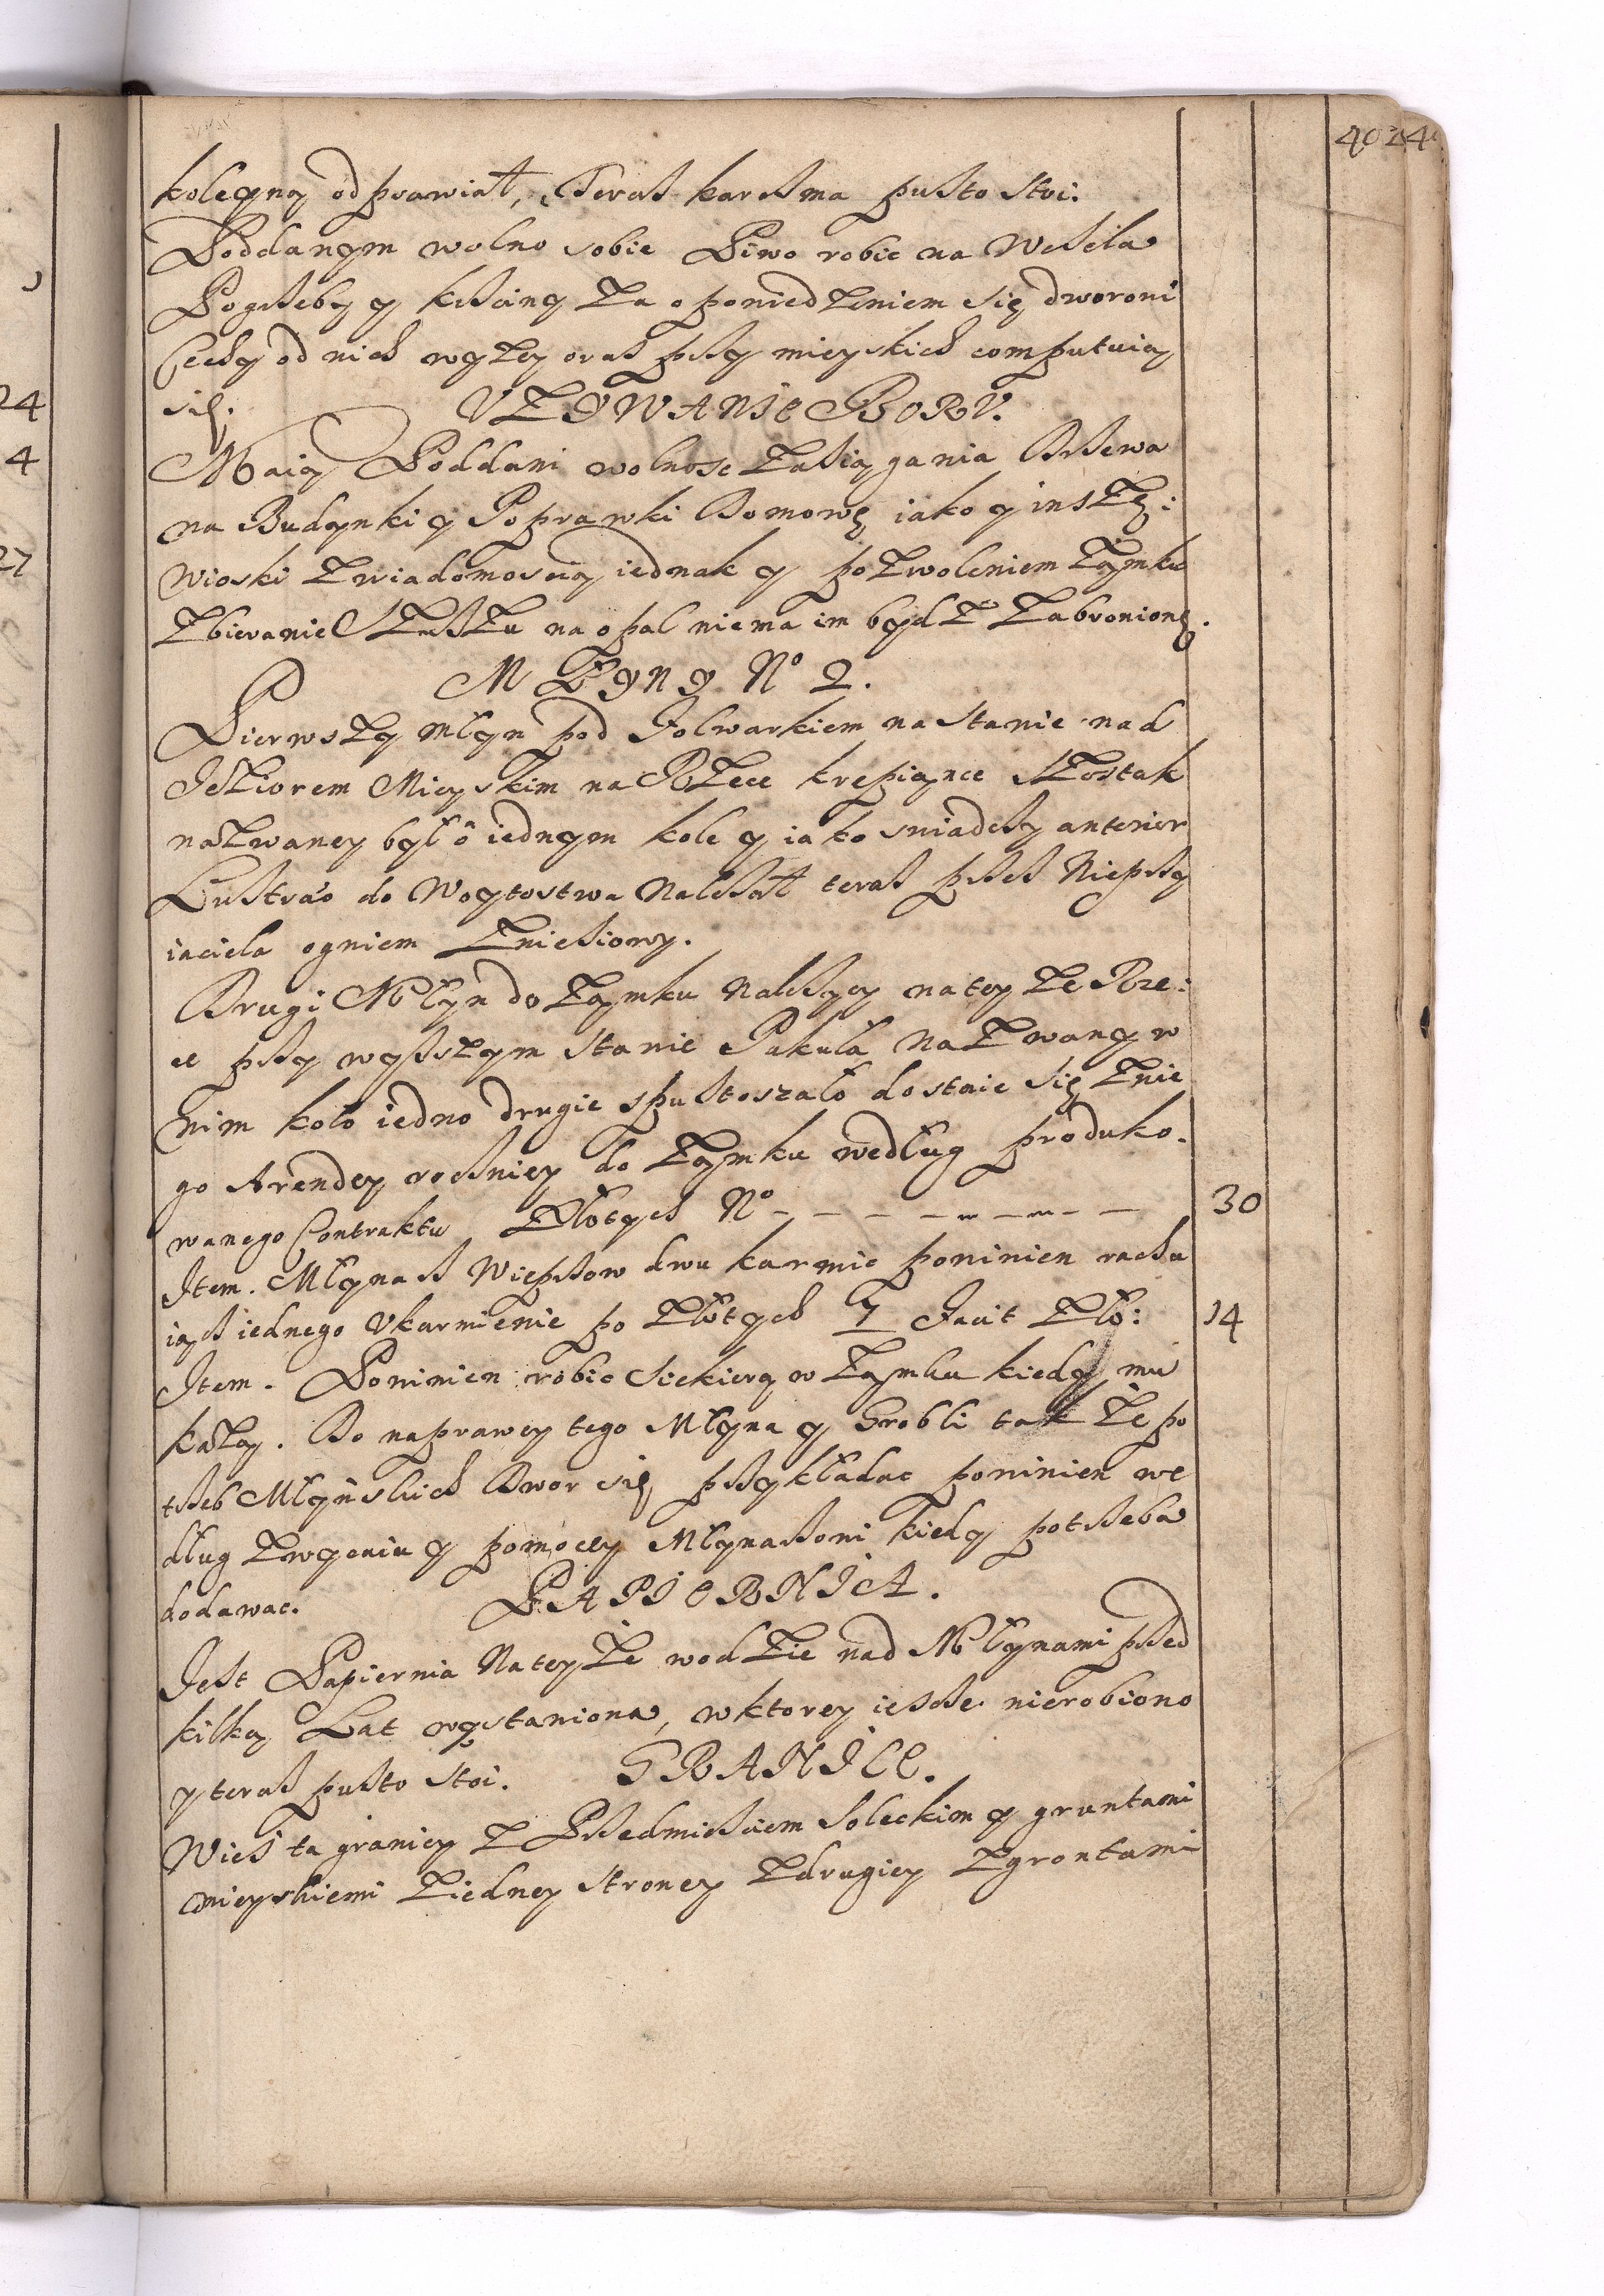 40 24
koleyną odprawiał, Teraz karczma pusto stoi.
Poddanym wolno sobie Piwo robic na Wesela
Pogrzeby y krzciny za opowiedzeniem się dworowi
Czechy od nich wyzey oraz przy mieyskich computuią
się. VZYWANIE BORV.
Maią Poddani wolnosc zasiągania Drzewa
na Budynki y Poprawki Domowe iako y insze:
Wioski z wiadomoscią iednak y pozwoleniem Zamku
Zbieranie Suszu na opał niema im bydz zabronione.
MŁYNY No 2.
Pierwszy młyn pod Folwarkiem na stanie nad
Jeziorem Mieyskim na Rzece krepiance Szostak
nazwaney był o iednym kole y iako sniadczy anterior
Lustrao do Woytostwa Nalezał teraz przez Nieprzy
iaciela ogniem zniesiony.
Drugi Młyn do Zamku Należący na teyze Rze:
ce przy wyzszym stanie Pakuła Nazwany w
nim koło iedno drugie spustoszało dostaie się znie
go Arendey roczniey do Zamku według produko.
wanego Contraktu Złotych No - - - - - - - - 30
Item. Młynarz Wieprzow dwu karmic powinien rachu
iąc iednego Vkarmienie po Złotych 7 Facit Zło: 14
Item. Powinien robic Siekierą w Zamku kiedy mu
każą. Do naprawey tego Młyna y Grobli takze po
trzeb Młynskich Dwor się przykładac powinien we
dług zwyczaiu y pomocy Młynarzowi kiedy potrzeba
dodawac. PAPIERNIA.
Jest Papiernia Na teyże wodzie nad Młynami przed
kilką Lat wystawiona, w ktorey ieszcze nierobiono
y teraz pusto stoi. GRANICE.
Wieś ta graniczy z Przedmiesciem Soleckim y gruntami
mieyskiemi z iedney strony z drugiey z grontami
24
4
27